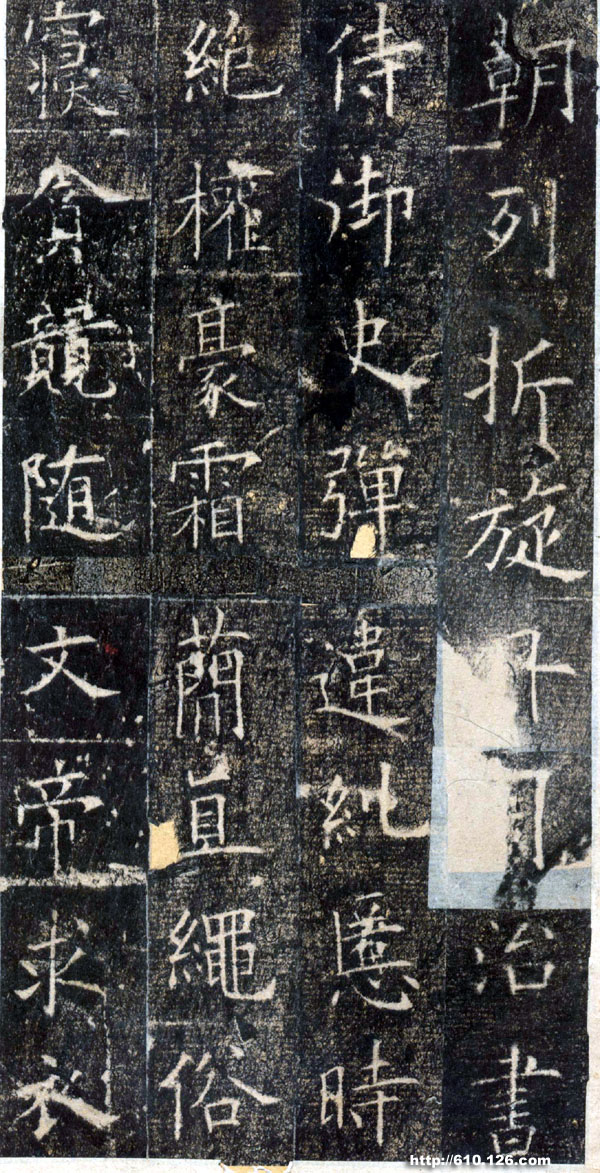 朝列折旋治書
侍御史彈違糺慝時
絶權豪霜蕳直繩俗
寢貪競随文帝求衣
http://610.126.com